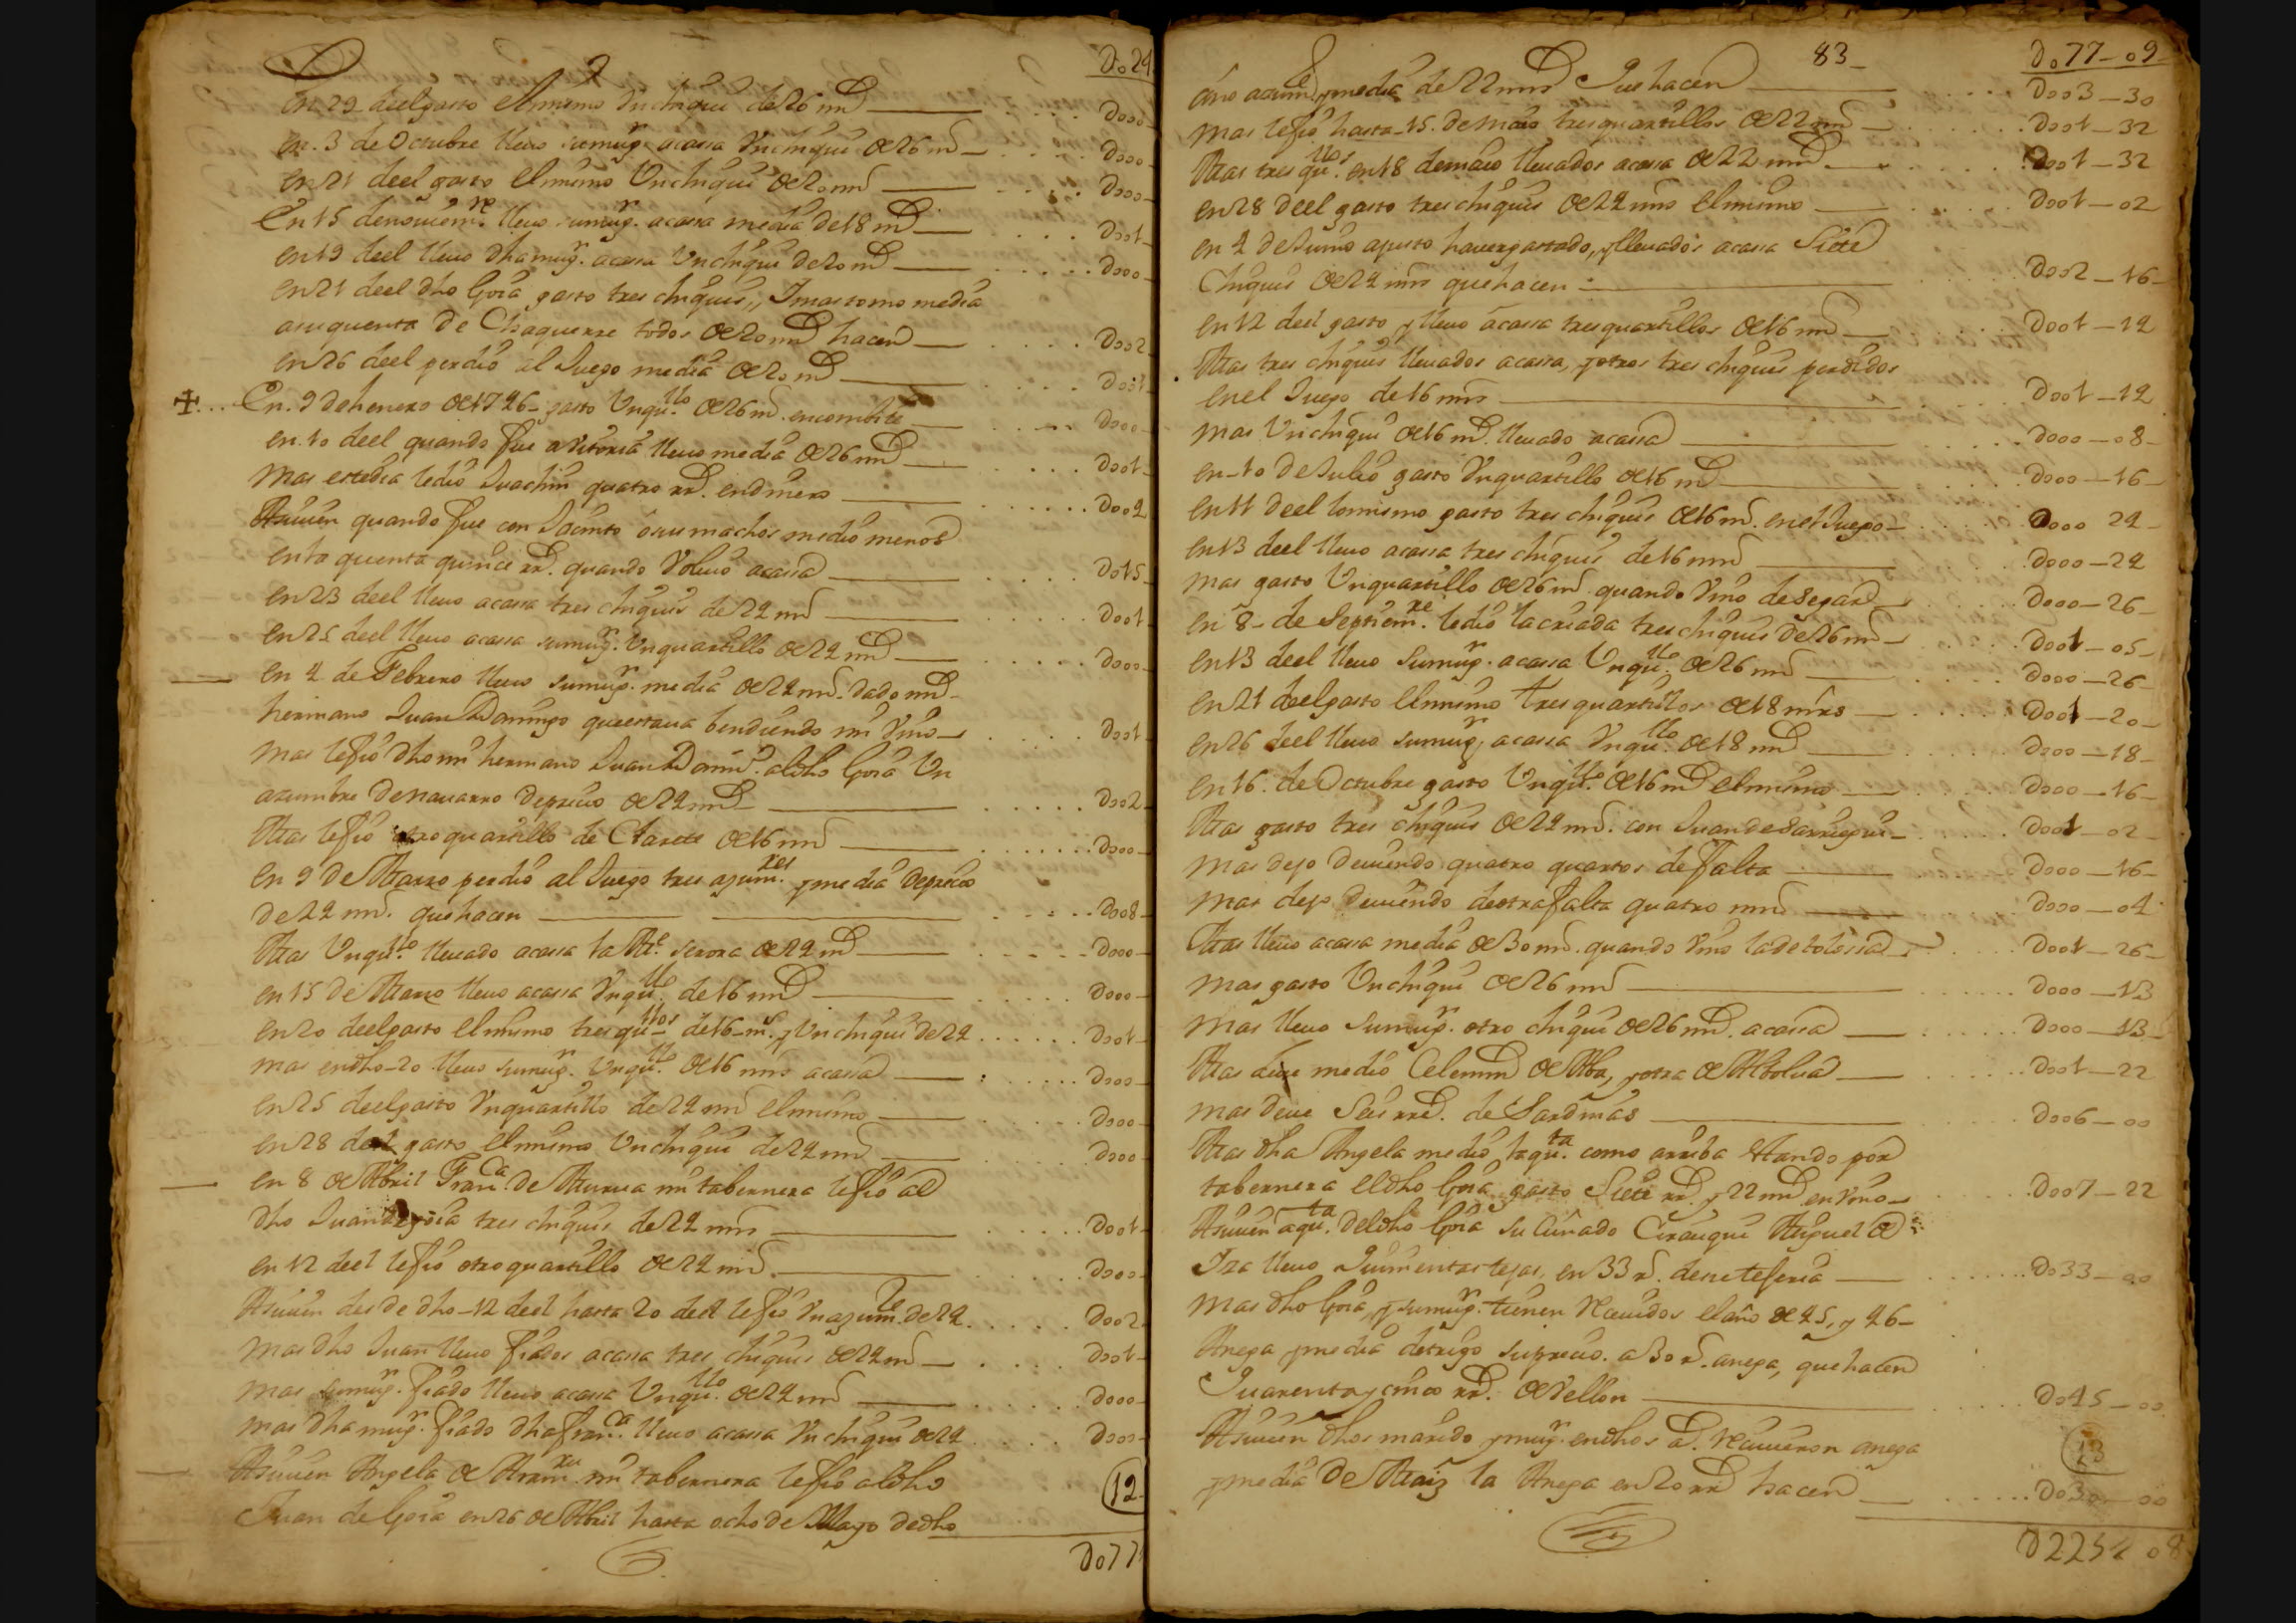 Do29
en 29 deel gasto el mismo Vnchiqui de 26 mrs Dooo
en 3 de Octubre lleuo su mugr acassa Vnchiqui de 26 ms Dooo
en 21 deel gasto el mismo Vnchiqui de 20 mrs Dooo
En 15 de nouiemre lleuo su mugr. acassa media de 18 ms Doo1
en 19 deel lleuo dha mugr. acassa Vnchiqui de 20 ms Dooo
en 21 deel dho Goia gasto tres chiquis, Y mas tomo media
asu quenta de Chaquerre todos de 20 mrs hacen Doo2
en 26 deel perdio al Juego media de 20 ms Doo1
En 9 de henero de 1726 gasto Vnqullo de 26 ms en combite Dooo
en 10 deel quando fue a Vitoria lleuo media de 26 mrs Doo1
mas este dia le dio Juachin quatro rrs. en dinero Doo4
Assiuien quando fue con Jacinto o sus machos me dio menos
en la quenta quince rrs. quando Voluio acassa Do15
en 23 deel lleuo acassa tres chiquis de 24 mrs Doo1
en 25 deel lleuo acassa su mugr. Vnquartillo de 24 mrs Dooo
en 4 de Febrero lleuo su mugr. media de 24 mrs. dado mi
hermano Juan Domingo que estaua bendiendo mi Vino Doo1
mas le fio dho mi hermano Juan Domio. al dho Goia Vn
azumbre de nauarro de precio de 24 mrs Doo2
Mas le fio otro quartillo de Clarete de 16 mrs Dooo
en 9 de Marzo perdio al Juego tres azumres y media de precio
de 22 mrs. que hacen Doo8
Mas Vnqullo lleuado acassa la Me serora de 24 ms Dooo
en 15 de Marzo lleuo acassa Vnqullo de 16 mrs Dooo
en 20 deel gasto el mismo tres qullos de 16 ms. y Vnchiqui de 24 Doo1
mas en dho 20 lleuo su mugr. Vnqullo de 16 mrs acassa Dooo
en 25 deel gasto Vnquartillo de 24 mrs el mismo Dooo
en 28 deel gasto el mismo Vnchiqui de 24 mrs Dooo
en 8 de Abril Franca de Murua mi tabernera le fio al
dho Juan de Goia tres chiquis de 24 mrs Doo1
en 12 deel le fio otro quartillo de 24 mrs Dooo
Assiuien desde dho 12 deel hasta 20 deel le fio Vn azumre de 24 Doo2
mas dho Juan lleuo fiados acassa tres chiquis de 24 ms Doo1
mas su mugr. fiado lleuo acassa Vnqullo de 24 mrs Dooo
mas dha mugr. fiado dha franca lleuo acassa Vnchiqui de 24 Dooo
Assiuien Angela de mi tabernera le fio al dho
Juan de Goia en 26 de Abril hasta ocho de Mayo de dho
12
Do77
83 Do77-09
año azumre y media de 22 mrs Que hacen Doo3-30
mas le fio hasta 15 de maio tres quartillos de 22 mrs Doo1-32
Mas tres qullos en 18 de maio lleuados acassa de 22 mrs Doo1-32
en 28 deel gasto tres chiquis de 24 mrs el mismo Doo1-02
en 4 de Junio ajusto hauer gastado, y lleuados acassa Siete
Chiquis de 24 mrs que hacen Doo2-16
en 12 deel gasto y lleuo acassa tres quartillos de 16 mrs Doo1-14
Mas tres chiquis lleuados acassa, y otros tres chiquis perdidos
en el Juego de 16 mrs Doo1-14
mas Vnchiqui de 16 ms. lleuado acassa Dooo-08
en 10 de Julio gasto Vnquartillo de 16 ms Dooo-16
en 11 deel lo mismo gasto tres chiquis de 16 ms. en el Juego Dooo 24
en 13 deel lleuo acassa tres chiquis de 16 mrs Dooo-24
mas gasto Vnquartillo de 26 ms. quando Vino de segar Dooo-26
en 8 de Septiemre le dio la criada tres chiquis de 26 mrs Doo1-05
en 13 deel lleuo su mugr. acassa Vnqullo de 26 mrs Dooo-26
en 21 deel gasto el mismo tres quartillos de 18 mrs Doo1-20
en 26 deel lleuo su mugr. acassa Vnqullo de 18 mrs Dooo-18
en 16 de Octubre gasto Vnqullo de 16 ms el mismo Dooo-16
Mas gasto tres chiquis de 24 mrs. con Juan de Sarriegui Doo1-02
mas dejo deuiendo quatro quartos de falta Dooo-16
mas dejo deuiendo de otra falta quatro mrs Dooo-04
Mas lleuo acassa media de 30 ms. quando Vino la de tolossa Doo1-26
mas gasto Vnchiqui de 26 mrs Dooo-13
mas lleuo su mugr. otro chiqui de 26 mrs acassa Dooo-13
Mas deue medio Celemin de Aba, y otra de Albolua Doo1-22
mas deue Seis rrs. de Sardinas Doo6-00
Mas dha Angela me dio la quta como arriba Estando por
tabernera el dho Goia gasto Siete rrs. y 22 mrs en Vino Doo7-22
Assiuien a quta del dho Goia su Cuñado Cirauqui Miguel de
Iza lleuo Quinientas tejas, en 33 rs. de mi tejeria Do33-00
mas dho Goia, y su mugr. tienen Reciuidos el año de 25, y 26
Anega y media de trigo su precio a 30 rs. anega, que hacen
Quarenta y cinco rrs. de Vellon Do45-00
Assiuien dhos marido y mugr. en dhos as. Reciuieron anega
y media de Maiz la Anega en 20 rrs hacen Do30-00
13